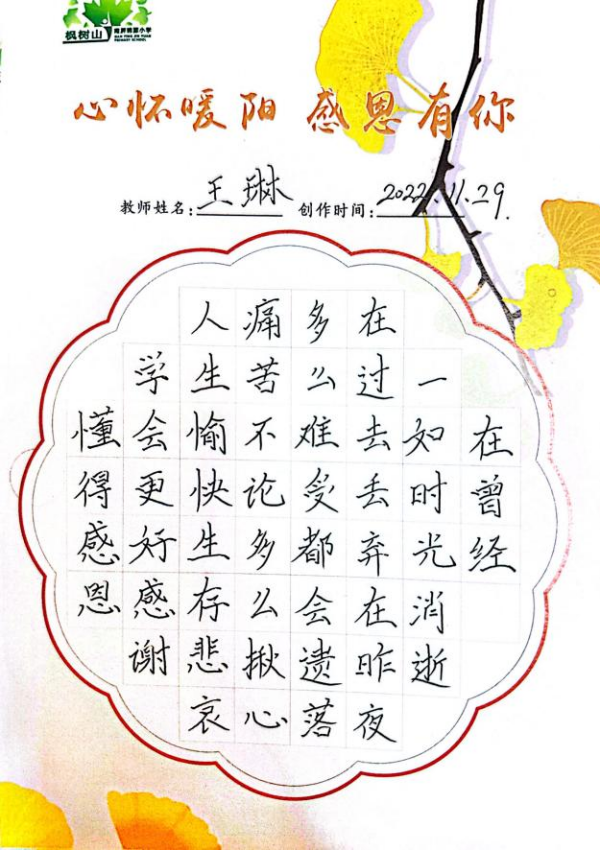 枫树山
心怀暖阳 感恩有你
教师姓名：王琳 创作时间：2022.11.29.
在曾经
一如时光消逝
在过去丢弃在昨夜
多么难受都会遗落
痛苦不论多么揪心
人生愉快生存悲哀
学会更好感谢
懂得感恩